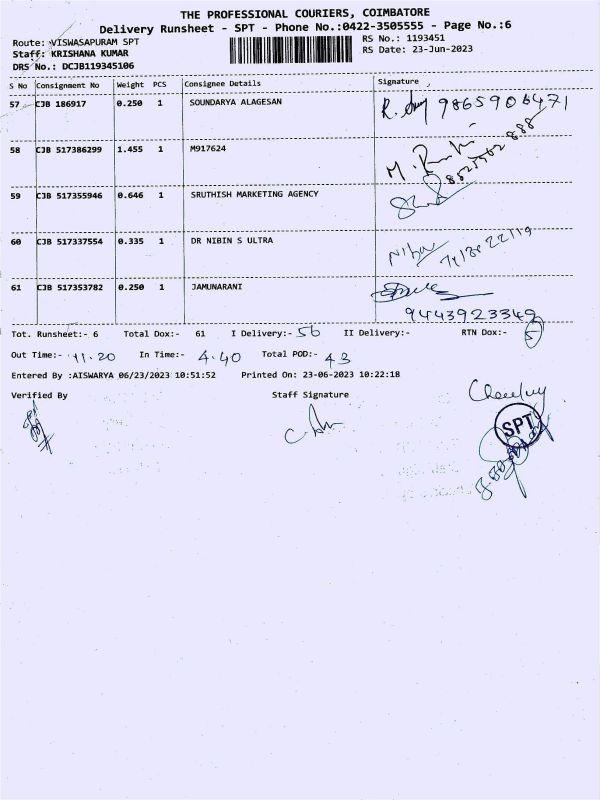 THE PROFESSIONAL COURIERS, COIMBATORE
Delivery Runsheet - SPT - Phone No.:0422-3505555 - Page No.:6
Route: VISWASAPURAM SPT
Staff: KRISHANA KUMAR
DRS No.: DCJB119345106
RS No.: 1193451
RS Date: 23-Jun-2023
S No Consignment No Weight PCS Consignee Details Signature
57 CJB 186917 0.250 1 SOUNDARYA ALAGESAN 9865906471
58 CJB 517386299 1.455 1 M917624
59 CJB 517355946 0.646 1 SRUTHISH MARKETING AGENCY
60 CJB 517337554 0.335 1 DR NIBIN S ULTRA
61 CJB 517353782 0.250 1 JAMUNARANI
9443923342
Tot. Runsheet:- 6 Total Dox:- 61 I Delivery:- 56 II Delivery:- RTN Dox:- 5
Out Time:- 11.20 In Time:- 4.40 Total POD:- 43
Entered By :AISWARYA 06/23/2023 10:51:52 Printed On: 23-06-2023 10:22:18
Verified By Staff Signature
SPT